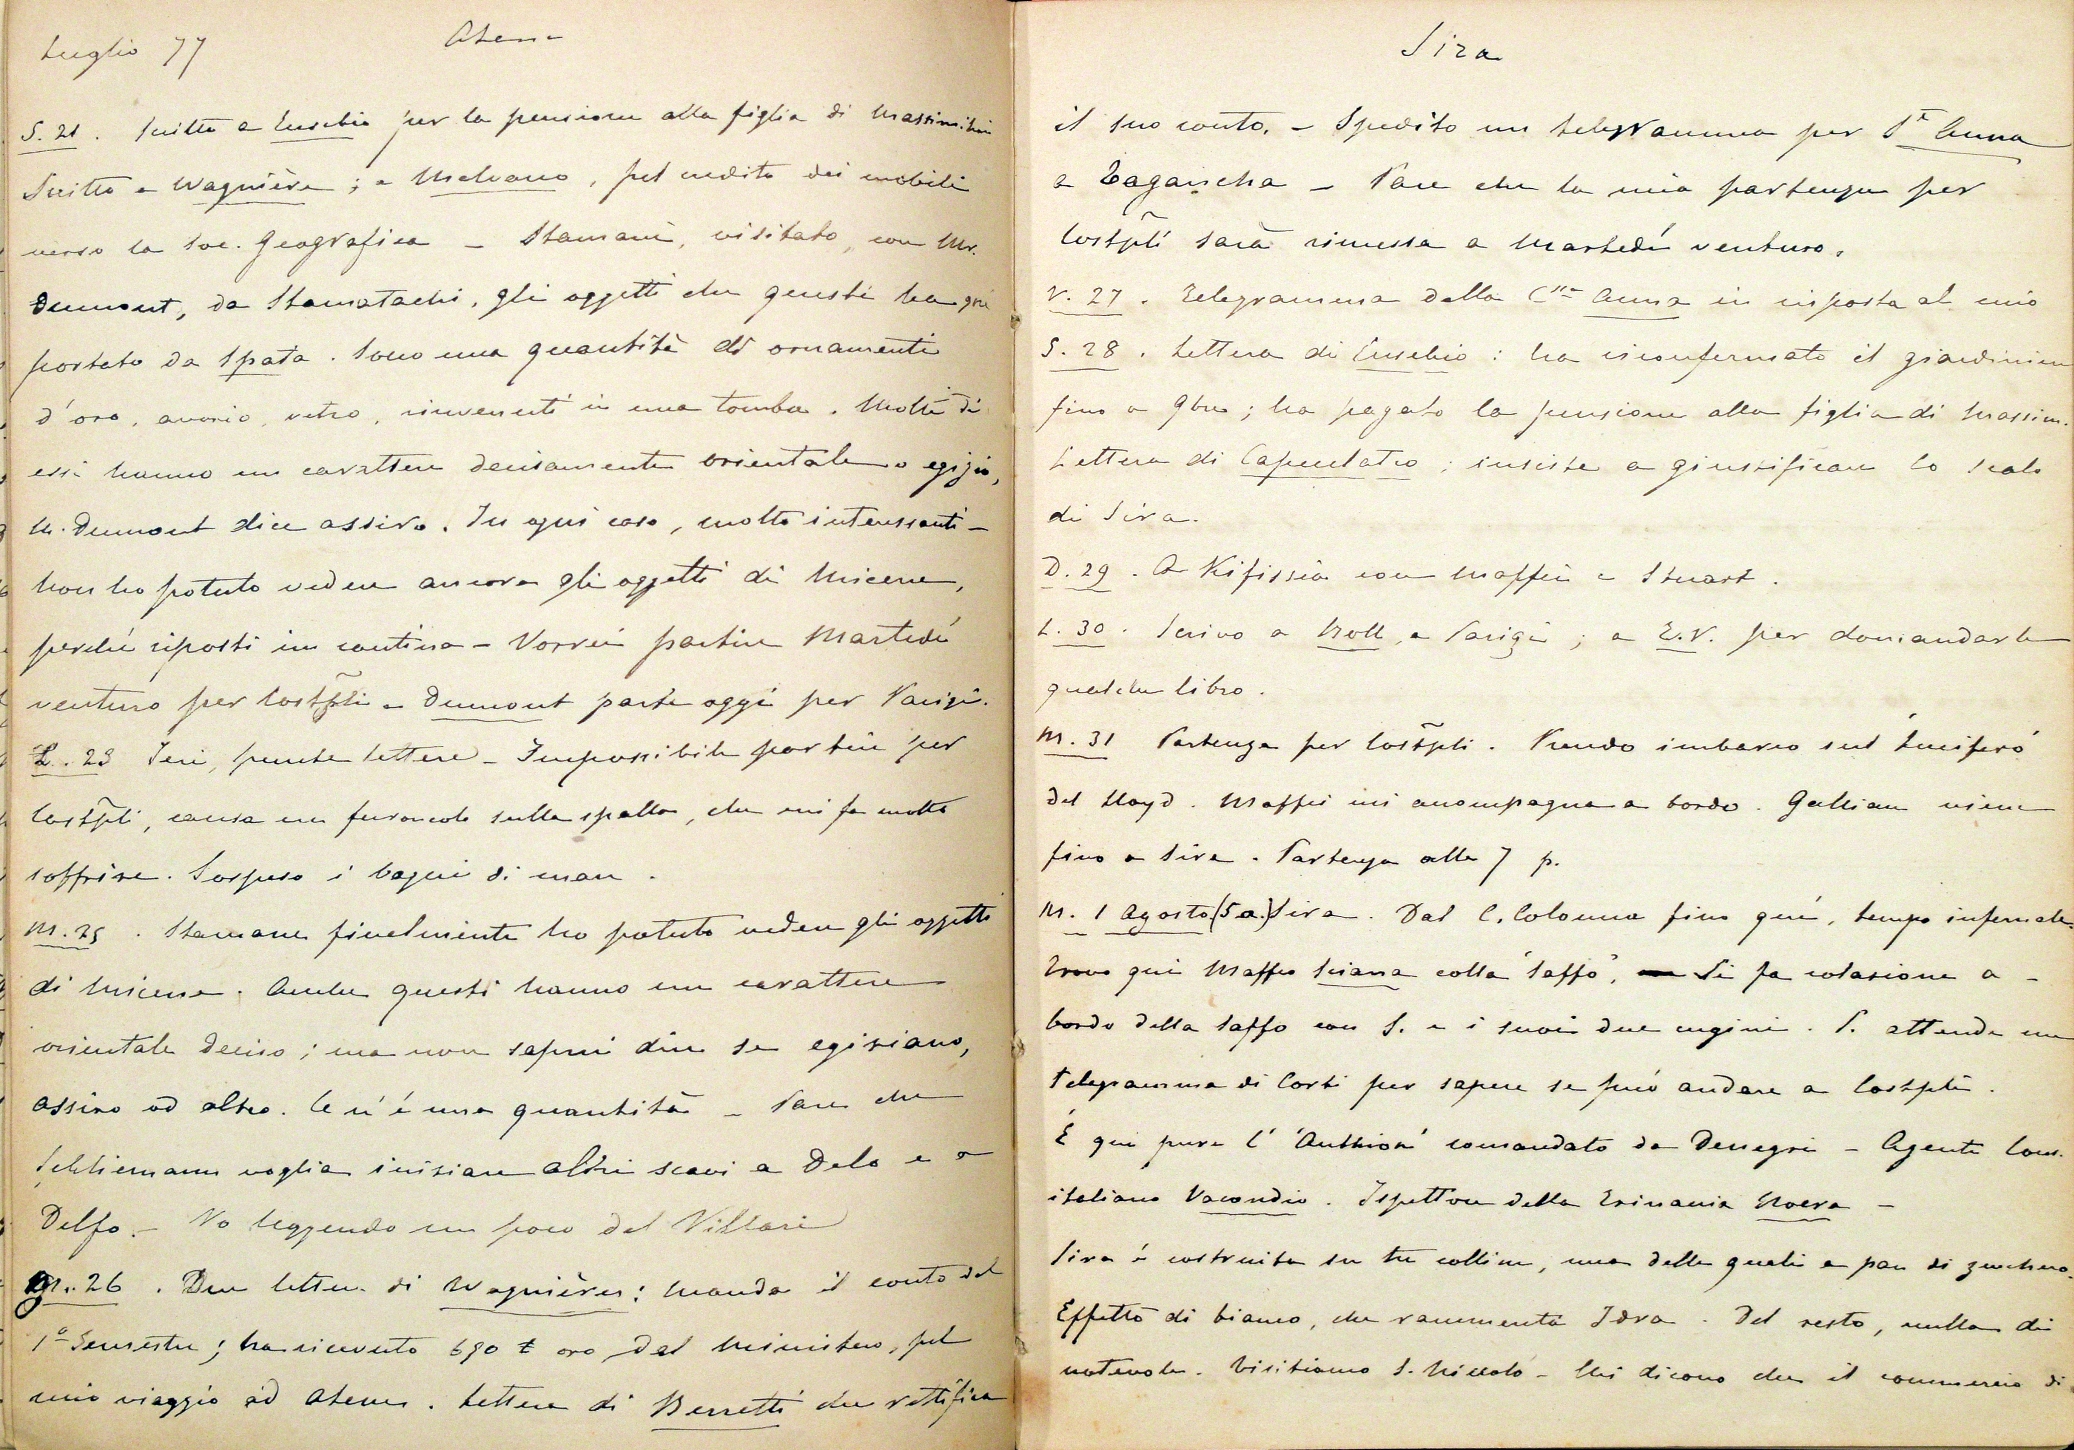 Luglio 77
Atene
S. 21. Scritto a Eusebio per la pensione alla figlia di Massimini
Scritto a Wagnière; a Malvano, pel credito dei mobili
verso la Soc. Geografica – Stamani, visitato, con Mr.
Dumont, da Stamatachi, gli oggetti che questi ha
portato da Spata. Sono una quantità di ornamenti
d'oro, avorio, vetro, rinvenuti in una tomba. Molti di
essi hanno un carattere decisamente orientale o egizio,
M. Dumont dice assiro. In ogni caso, molto interessanti –
Non ho potuto vedere ancora gli oggetti di Micene,
perché riposti in cantina – Vorrei partire Martedí
venturo per Costpli – Dumont parte oggi per Parigi.
L. 23 Ieri, punte lettere – Impossibile partire per
Costpli, causa un furoncolo sulla spalla, che mi fa molto
soffrire. Sospeso i bagni di mare.
M. 25. Stamane finalmente ho potuto vedere gli oggetti
di Micene. Anche questi hanno un carattere
orientale deciso; ma non saprei dire se egiziano,
assiro od altro. Ce n'é una quantità – Pare che
Schliemann voglia iniziare altri scavi a Delo e a
Delfo. – Vo leggendo un poco del Villari
26. Due lettere di Wagnière: manda il conto del
1º Semestre; ha ricevuto 690 ₤ oro dal Ministero, pel
mio viaggio ad Atene. Lettera di Berretti che rettifica
Sira
il suo conto. – Spedito un telegramma per Anna
a – Pare che la mia partenza per
Costpli sarà rimessa a Martedí venturo.
V. 27. Telegramma della Anna in risposta al mio
S. 28. Lettera di Eusebio: ha riconfermato il giardiniere
fino a 9bre; ha pagato la pensione alla figlia di Massim.
Lettera di; insiste a giustificare lo scalo
di Sira.
D. 29. A Kifissia con Maffei e Stuart.
L. 30. Scrivo a Noll, a Parigi; a E.V. per domandarle
qualche libro.
M. 31 Partenza per Costpli. Prendo imbarco sul "Lucifero"
del Lloyd. Maffei mi accompagna a bordo. Galliani viene
fino a Sira. Partenza alle 7 p.
M. 1 Agosto (5 a.) Sira. Dal C. Colonna fino qui, tempo infernale.
Trovo qui Maffeo Sciarra colla "Saffo". Si fa colazione a
bordo della Saffo con S. e i suoi due cugini. S. attende un
telegramma di Corti per sapere se può andare a Costpli.
È qui pure l' "Authion" comandato da Denegri – Agente Cons.
italiano Vacondio. Ispettore della Trinacria –
Sira é costruita su tre colline, una delle quali a pan di zucchero.
Effetto di bianco, che rammenta Idra. Del resto, nulla di
notevole. Visitiamo S. Niccolò – Mi dicono che il commercio di